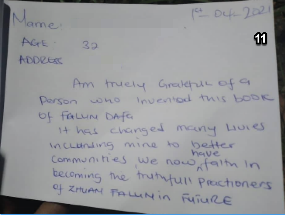 1st - Dec - 2021
Name
11
AGE: 32
ADDRESS
Am truely Grateful of a
Person who invented this book
of FALUN DAFA
It has changed many Livies
including mine to better
have
communities, we now faith in
becoming the truthfull Practioners
of ZHUAN FALUN in FUTURE